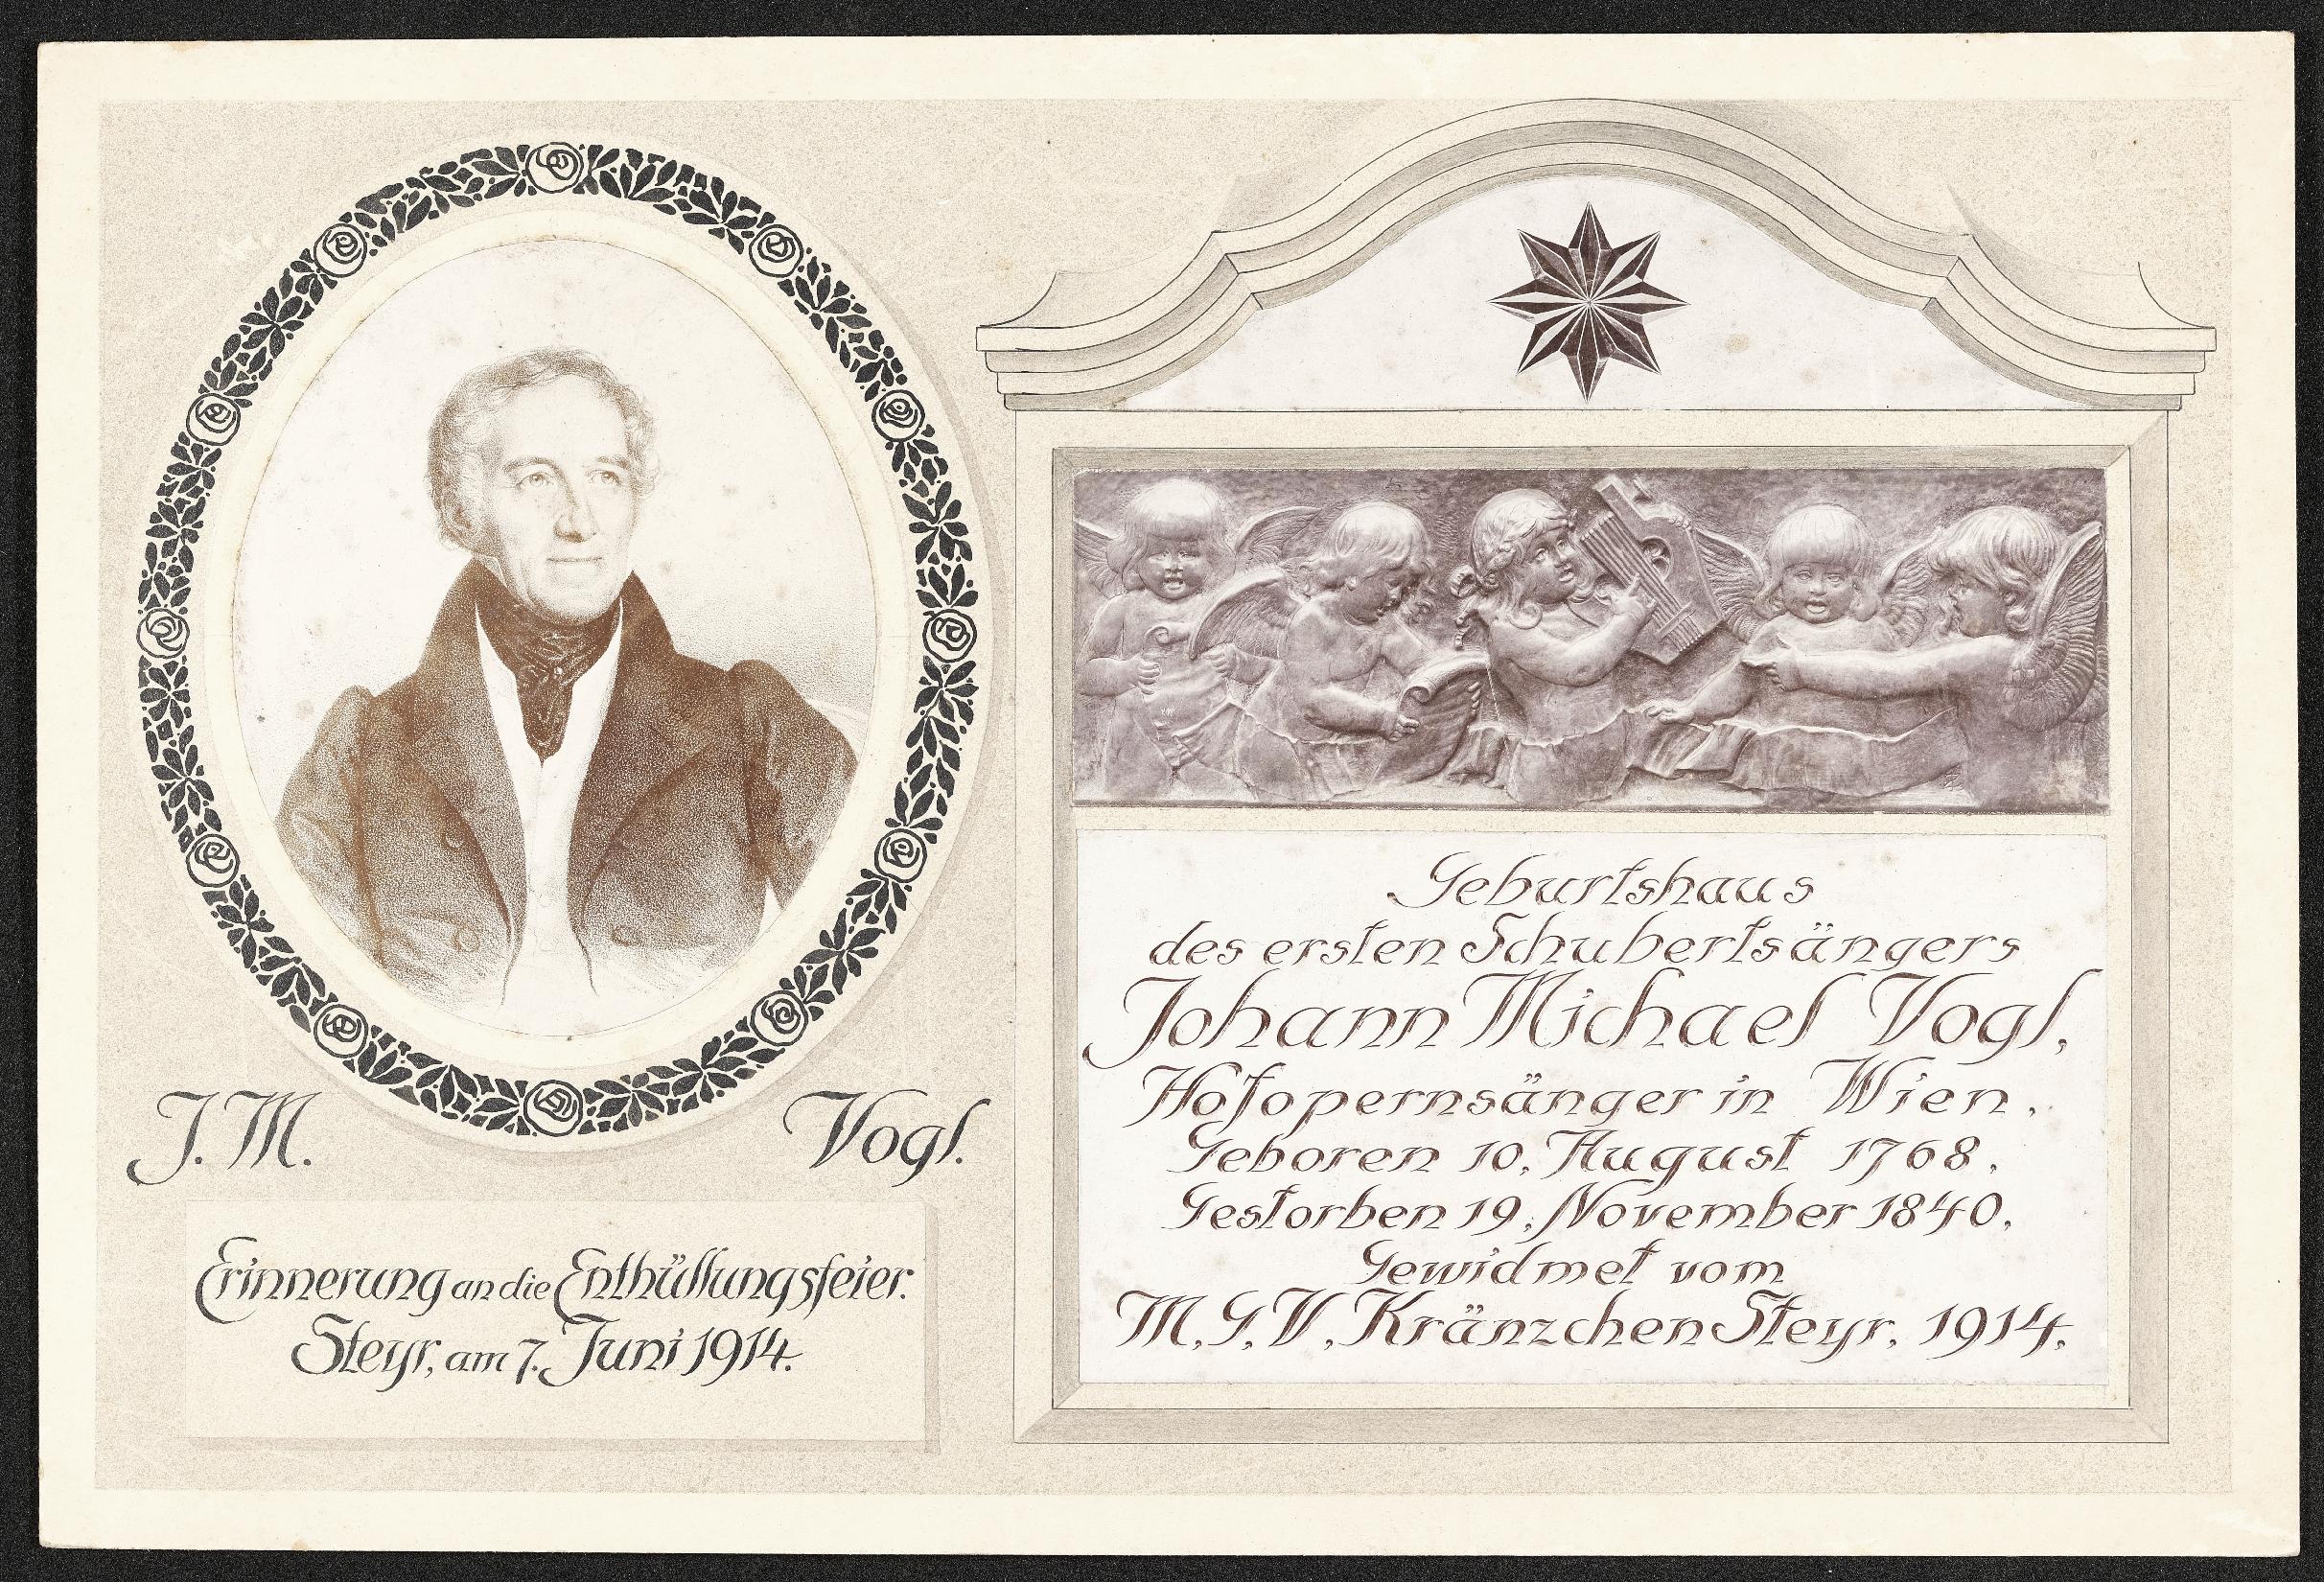 J. M. Vogl.
Erinnerung an die Enthüllungsfeier.
Steyr, am 7. Juni 1914.
Geburtshaus
des ersten Schubertsängers
Johann Michael Vogl,
Hofopernsänger in Wien.
Geboren 10. August 1768.
Gestorben 19. November 1840.
Gewidmet vom
M. G. V. Kränzchen Steyr. 1914.